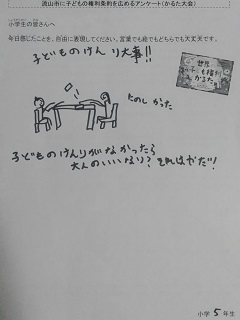 流山市に子どもの権利条約を広めるアンケート(かるた大会)
小学生の皆さんへ
今日感じたことを、自由に表現してください。言葉でも絵でもどちらでも大丈夫です。
子どものけんり大事!!
世界
子ども権利
かるた
たのしかった
子どものけんりがなかったら
大人のいいなり?それはやだ!
小学5年生